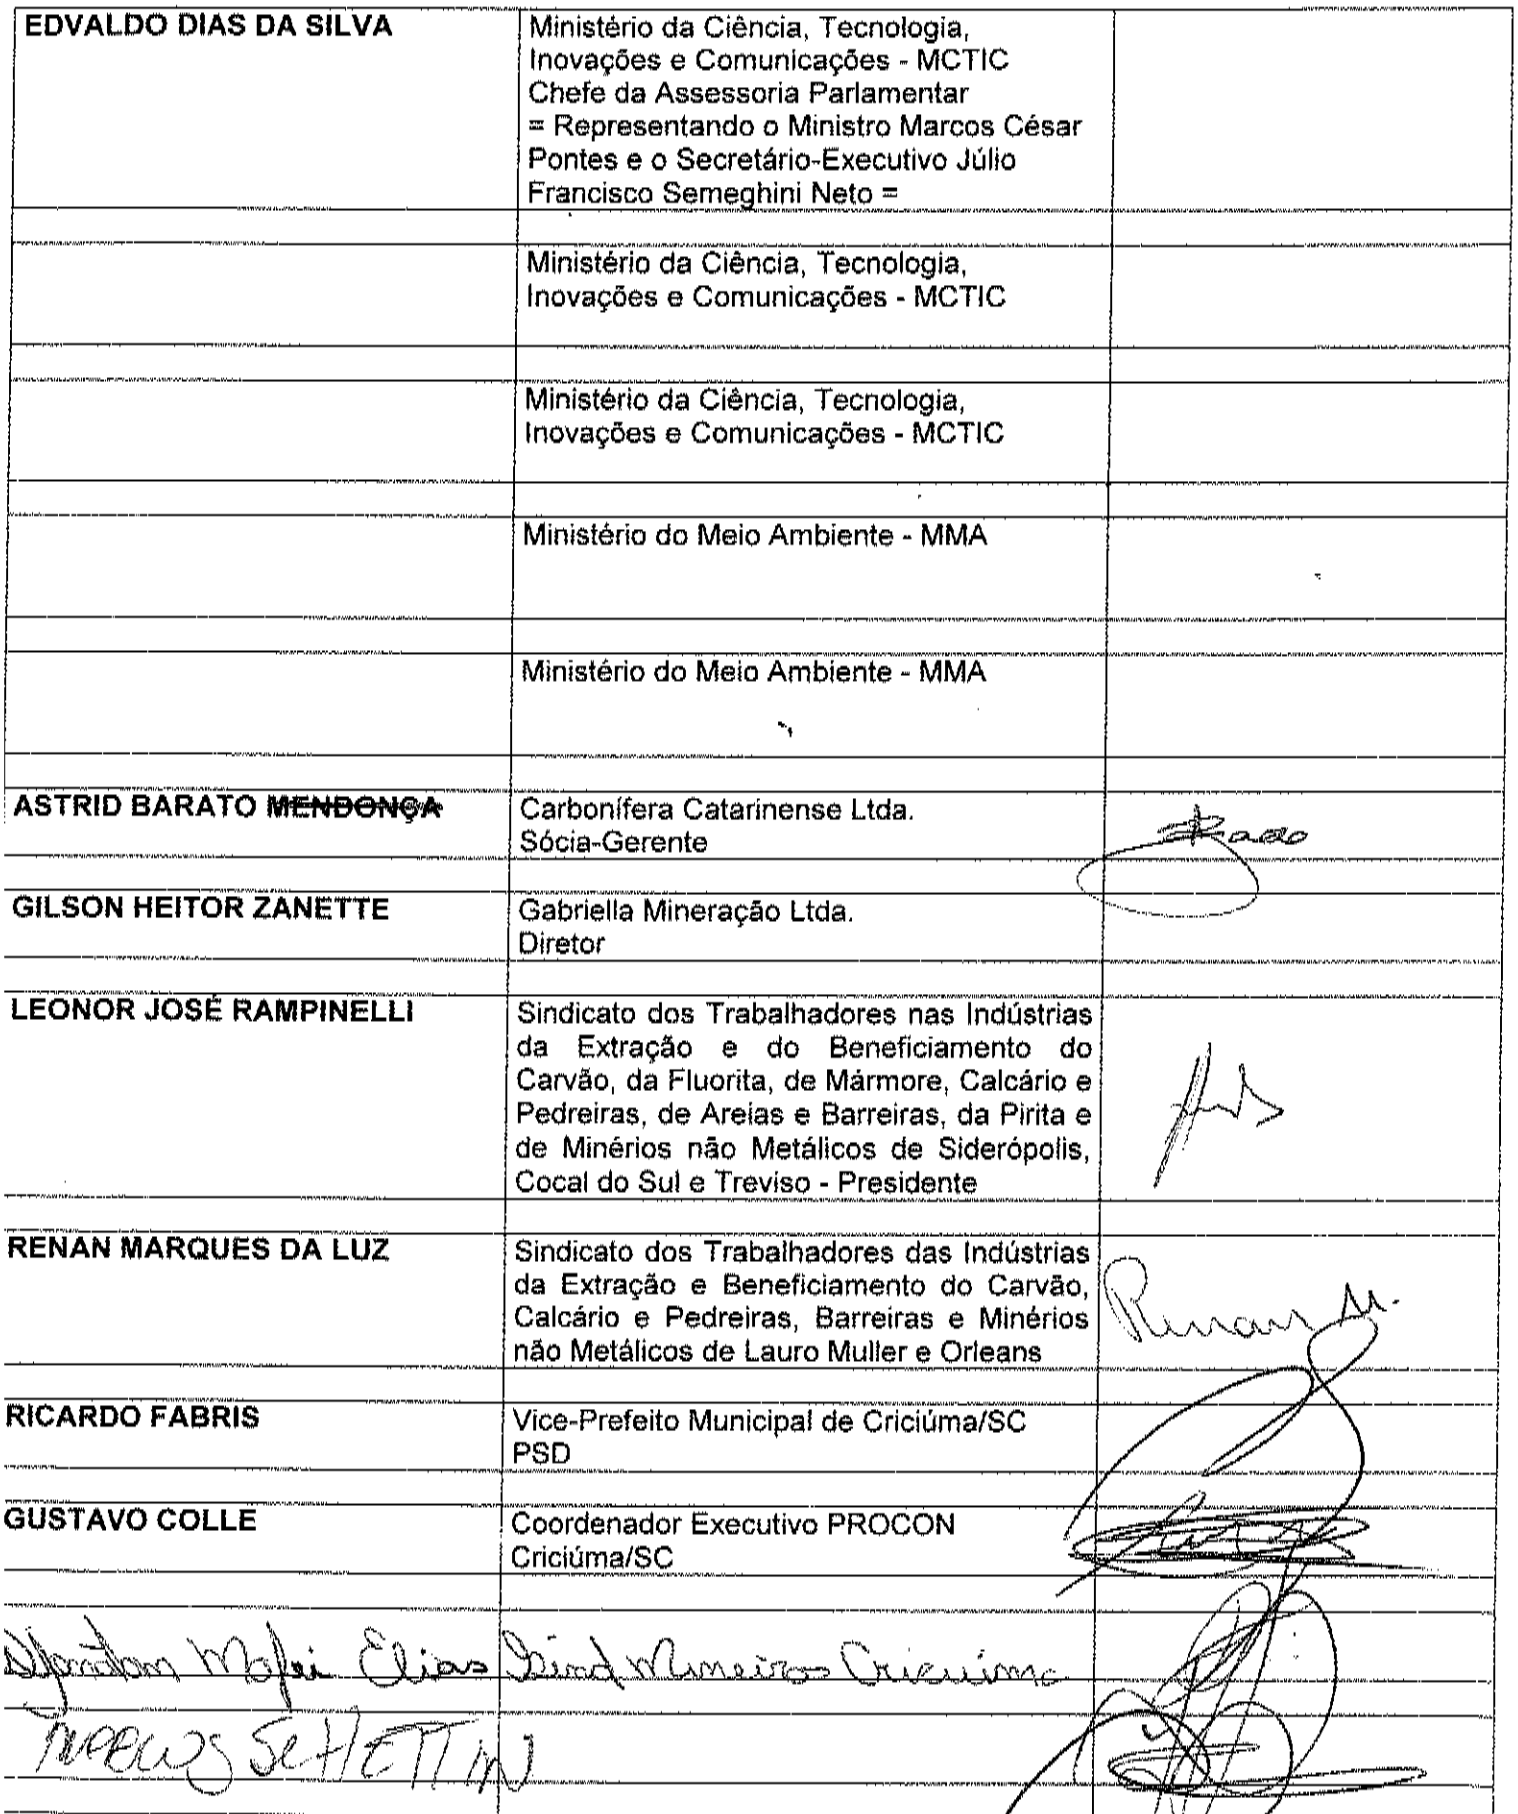 EDVALDO DIAS DA SILVA
Ministério da Ciência, Tecnologia,
Inovações e Comunicações - MCTIC
Chefe da Assessoria Parlamentar
= Representando o Ministro Marcos César
Pontes e o Secretário-Executivo Júlio
Francisco Semeghini Neto =
Ministério da Ciência, Tecnologia,
Inovações e Comunicações - MCTIC
Ministério da Ciência, Tecnologia,
Inovações e Comunicações - MCTIC
Ministério do Meio Ambiente - MMA
Ministério do Meio Ambiente - MMA
ASTRID BARATO MENDONÇA
Carbonífera Catarinense Ltda.
Sócia-Gerente
GILSON HEITOR ZANETTE
Gabriella Mineração Ltda.
Diretor
LEONOR JOSÉ RAMPINELLI
Sindicato dos Trabalhadores nas Indústrias
da Extração e do Beneficiamento do
Carvão, da Fluorita, de Mármore, Calcário e
Pedreiras, de Areias e Barreiras, da Pirita e
de Minérios não Metálicos de Siderópolis,
Cocal do Sul e Treviso - Presidente
RENAN MARQUES DA LUZ
Sindicato dos Trabalhadores das Indústrias
da Extração e Beneficiamento do Carvão,
Calcário e Pedreiras, Barreiras e Minérios
não Metálicos de Lauro Muller e Orleans
Renan M.
RICARDO FABRIS
Vice-Prefeito Municipal de Criciúma/SC
PSD
GUSTAVO COLLE
Coordenador Executivo PROCON
Criciúma/SC
Elias Sind Mineiros Criciúma
SCHETTINI